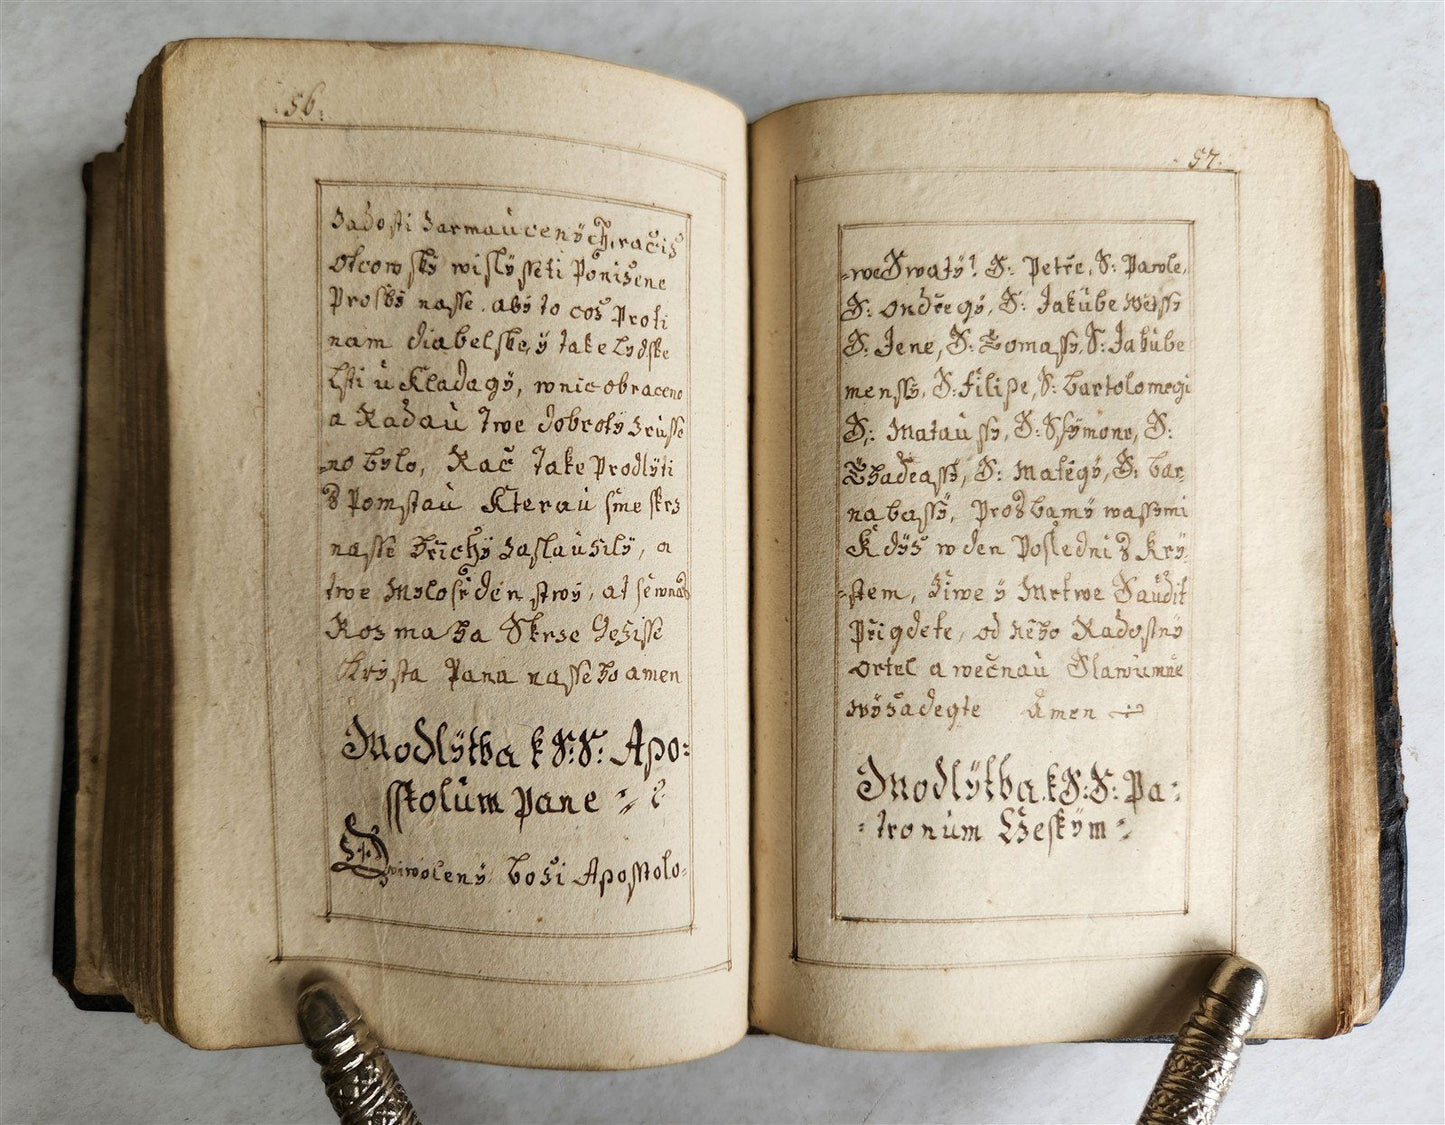 56.
žadosti zarmaucených, račiž
otcowsky wislysseti Ponižene
Prosby nasse. aby to coz Proti
nam diabelske, y take lydske
lsti u kladagy, wnic obraceno
a Radau twe dobroty zrusse
no bylo, Rač take Prodlyti
z Pomstau Kterau sme skrz
nasse hřichy zaslaužily, a
twe Mylosrdenstwy, at se wnas
Rozmaha Skrze Gežisse
Krysta Pana nasseho amen
Modlytba k S: S: Apo=
sstolum Pane
wiwoleny boži Aposstolo=
57.
=we Swaty! S: Petře, S: Pawle,
S: ondřegy, S: Jakube wetssy
S: Jene, S: Tomassy, S: Jakube
menssy, S: filipe, S: bartolomegi
S: Matau ssy, S: Ssymone, S:
Thadeassy, S: Matěgy, S: bar=
nabassy, Prozbamy wassymi
Kdyz w den Posledni z Kry=
=stem, žiwe y Mrtwe Saudit
Přigdete, od něho Radostny
ortel a wečnau Slawu mne
wyžadegte Amen
Modlytba k S: S: Pa=
=tronum Cžeskym=